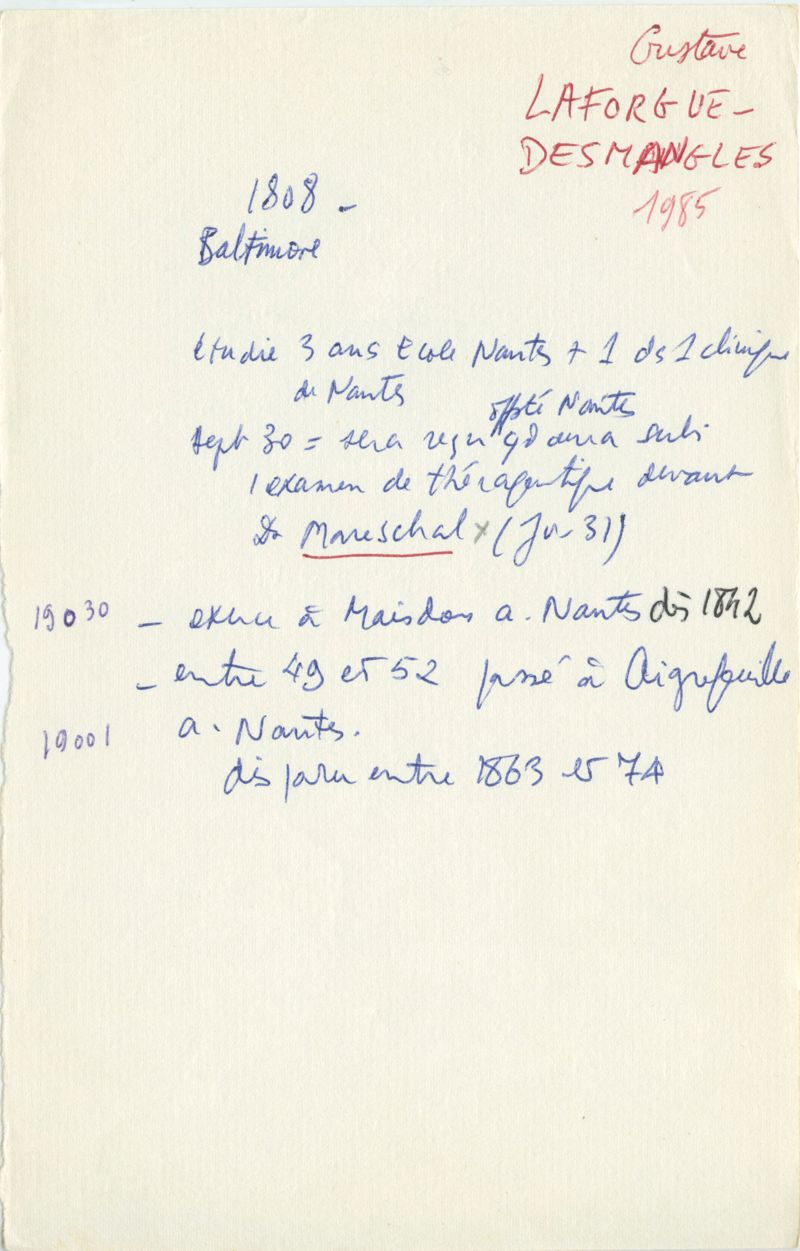 Gustave
LAFORGUE-
DESMANGLES
1985
1808 -
Baltimore
étudie 3 ans Ecole Nantes + 1 ds 1 clinique
de Nantes
offté Nantes
sept 30 = sera reçu qd aura subi
1 examen de thérapeutique devant
Dr Mareschal x (Jr 31)
19030 - exerce à Maisdon a. Nantes dès 1842
- entre 49 et 52 passé à Aigrefeuille
19001 a. Nantes.
disparu entre 1863 et 74